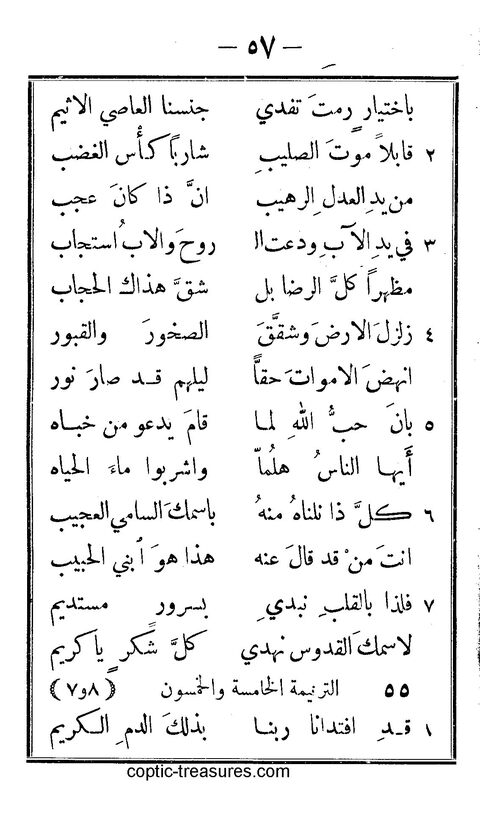 — ٥٧ —
باختيارٍ رمتَ تفدي جنسنا العاصي الاثيم
٢ قابلاً موتَ الصليبِ شارباً كأْس الغضب
من يدِ العدلِ الرهيب انَّ ذا كانَ عجب
٣ في يدِ الآبِ ودعتَ الـ روحَ والابُ استجاب
مظهراً كلَّ الرضا بل شقَّ هذاك الحجاب
٤ زلزلَ الارضَ وشقَّقَ الصخورَ والقبور
انهضَ الامواتَ حقاًّ ليلهم قـد صارَ نور
٥ بانَ حبُّ اللهِ لمـا قامَ يدعو من خباه
أَيهـا الناسُ هلُمّاَ واشربوا ماءَ الحياه
٦ كلَّ ذا نلناهُ منهُ باسمكَ السامي العجيب
انتَ منْ قد قالَ عنه هذا هوَ ابني الحبيب
٧ فلذا بالقلبِ نبدي بسرورٍ مستديم
لاسمكَ القدوس نهدي كلَّ شكرٍ ياكريم
٥٥ الترنيمة الخامسة والخمسون (٨و٧)
١ قـدِ افتدانا ربنـا بذلكَ الدمِ الـكريم
coptic-treasures.com